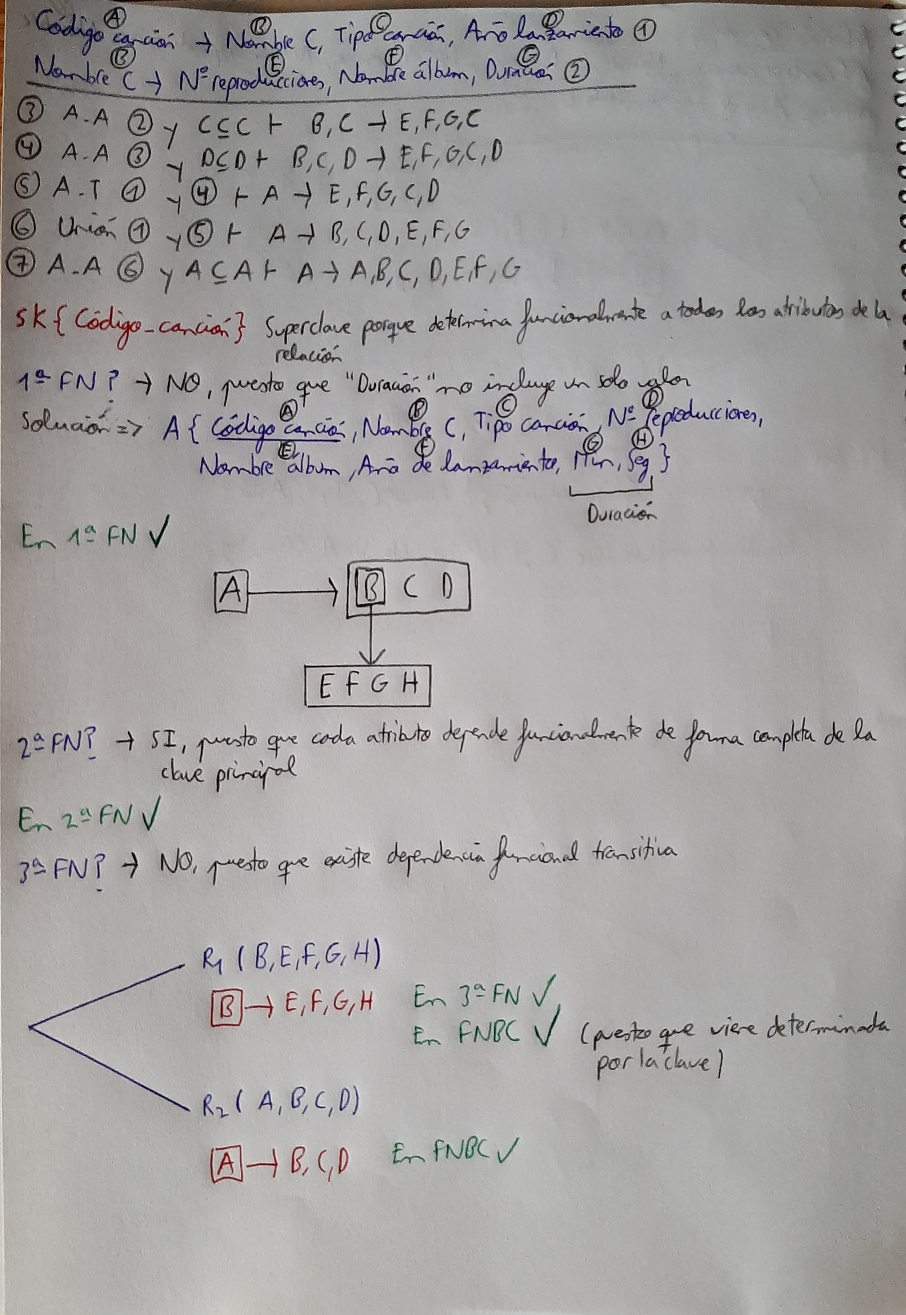 Ⓐ Ⓑ Ⓒ Ⓓ
Código canción → Nombre C, Tipo canción, Año lanzamiento ①
Ⓑ Ⓔ Ⓕ Ⓖ
Nombre C → Nº reproducciones, Nombre álbum, Duración ②
③ A.A ② y C⊆C ⊢ B, C → E, F, G, C
④ A.A ③ y D⊆D ⊢ B, C, D → E, F, G, C, D
⑤ A.T ① y ④ ⊢ A → E, F, G, C, D
⑥ Unión ① y ⑤ ⊢ A → B, C, D, E, F, G
⑦ A.A ⑥ y A⊆A ⊢ A → A, B, C, D, E, F, G
SK {Código_canción} Superclave porque determina funcionalmente a todos los atributos de la
relación
1ª FN? → NO, puesto que "Duración" no incluye un solo valor
Ⓐ Ⓑ Ⓒ Ⓓ
Solución => A { Código canción, Nombre C, Tipo canción, Nº reproducciones,
Ⓔ Ⓕ Ⓖ Ⓗ
Nombre álbum, Año de lanzamiento, Min, Seg }
Duración
En 1ª FN ✓
A → B C D
E F G H
2ª FN? → SI, puesto que cada atributo depende funcionalmente de forma completa de la
clave principal
En 2ª FN ✓
3ª FN? → NO, puesto que existe dependencia funcional transitiva
R1 (B, E, F, G, H)
B → E, F, G, H En 3ª FN ✓
En FNBC ✓ (puesto que viene determinada
por la clave)
R2 ( A, B, C, D)
A → B, C, D En FNBC ✓